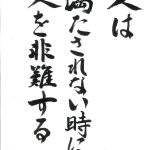 人は
満たされない時に
人を非難する